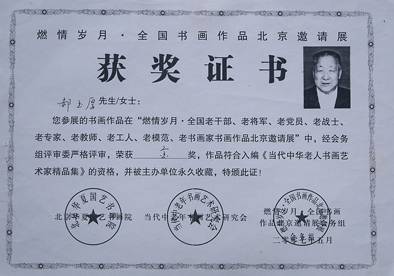 燃情岁月·全国书画作品北京邀请展
获奖证书
先生/女士:
您参展的书画作品在“燃情岁月·全国老干部、老将军、老党员、老战士、
老专家、老教师、老工人、老模范、老书画家书画作品北京邀请展”中,经会务
组评审委严格评审,荣获 金 奖,作品符合入编《当代中华老人书画艺
术家精品集》的资格,并被主办单位永久收藏,特颁此证!
北京华夏国艺书画院 当代中华老年书画艺术研究会 燃情岁月·全国书画
作品北京邀请展会务组
年五月